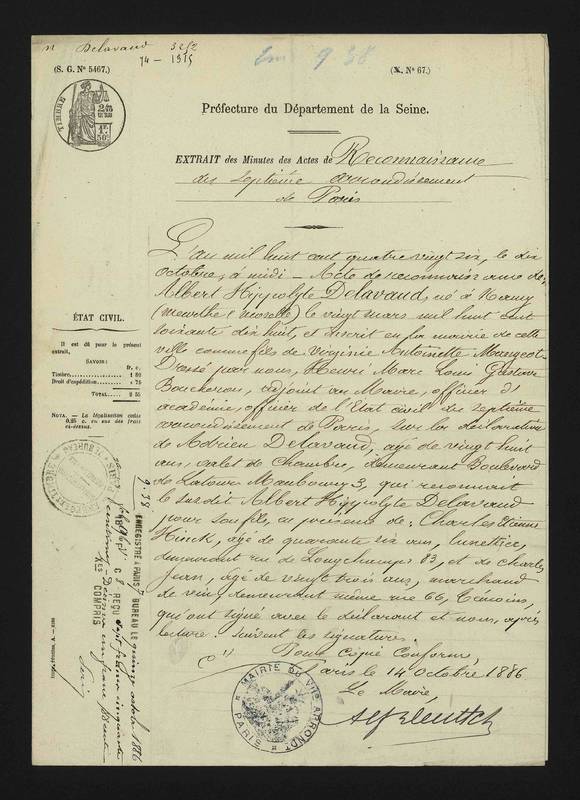 Delavaud
74 - 1915
Em 938
(S. G. Nº 5467.)
(X. Nº 67.)
TIMBRE
Préfecture du Département de la Seine.
EXTRAIT des Minutes des Actes de Reconnaissance
du Septième arrondissement
de Paris
L'an mil huit cent quatre vingt six, le dix
octobre, à midi - Acte de reconnaissance de
Albert Hippolyte Delavaud, né à Nancy
(meurthe & moselle) le vingt mars mil huit cent
soixante dix huit, et inscrit en la mairie de cette
ville comme fils de Virginie Antoinette Mangeot
Dressé par nous, Henri Marc Louis Gustave
Boucheron, adjoint au Maire, officier d'
académie, officier de l'Etat civil du septième
arrondissement de Paris, sur la déclaration
de Adrien Delavaud, âgé de vingt huit
ans, valet de chambre, demeurant Boulevard
de Latour Maubourg 3, qui reconnait
le susdit Albert Hippolyte Delavaud
pour son fils, en présence de : Charles Etienne
Hinck, âgé de quarante six ans, lunettier,
demeurant rue de Longchamps 83, et de Charles
Jean, âgé de vingt trois ans, marchand
de vin, demeurant même rue 66, témoins,
qui ont signé avec le déclarant et nous, après
lecture. Suivent les signatures.
Pour Copie Conforme,
Paris le 14 Octobre 1886
Le Maire,
MAIRIE DU VIIe ARRONDT
PARIS
ÉTAT CIVIL.
Il est dû pour le présent
extrait,
SAVOIR :
Fr. c.
Timbre 1 80
Droit d'expédition » 75
TOTAL 2 55
NOTA. — La légalisation coûte
0,25 c. en sus des frais
ci-dessus.
9.38
ENREGISTRÉ A PARIS, BUREAU LE quinze octobre 1886
REÇU sept francs cinquante
Décimes
COMPRIS